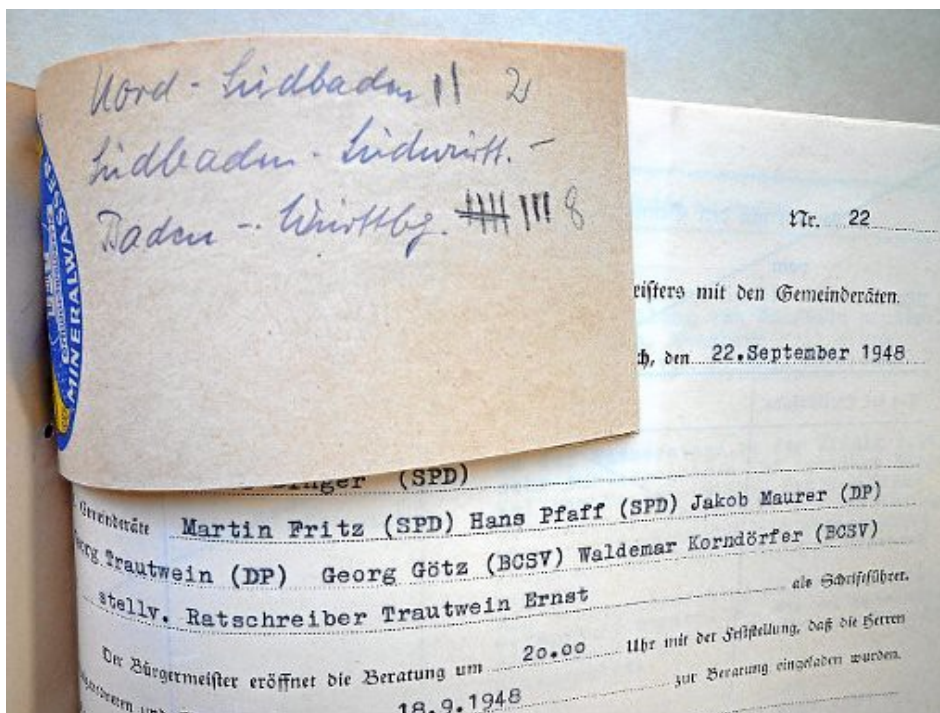 Nord - Südbaden || 2
Südbaden - Südwürtt. -
Baden - Württbg. |||| ||| 8
MINERALWASSER
Nr. 22
eisters mit den Gemeinderäten.
ch, den 22.September 1948
inger (SPD)
Gemeinderäte Martin Fritz (SPD) Hans Pfaff (SPD) Jakob Maurer (DP)
org Trautwein (DP) Georg Götz (BCSV) Waldemar Korndörfer (BCSV)
stellv. Ratschreiber Trautwein Ernst als Schriftführer.
Der Bürgermeister eröffnet die Beratung um 20.00 Uhr mit der Feststellung, daß die Herren
18.9.1948 zur Beratung eingeladen wurden.